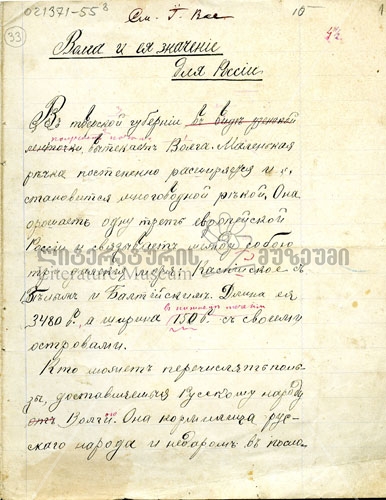 021371-55 в
См. Г. Все
10
1
33
Волга и ея значеніе
для Россіи
Въ тверской губерніи въ видѣ узенькой
ленточки, вытекаетъ Волга. Маленькая
рѣчка постепенно расширяется и
становится многоводной рѣкой. Она
орошаетъ одну треть европейской
Россіи и связываетъ между собою
три моря: Каспійское съ
ლიტერატურის მუზეუმი
Literature Museum
Бѣлымъ и Балтійскимъ. Длина ея
3480 в., а ширина 150 в. съ своими
островами.
Кто можетъ перечислять поль-
зы, доставляемыя Русскому народу
отъ Волги. Она кормилица рус-
скаго народа и недаромъ въ посло-